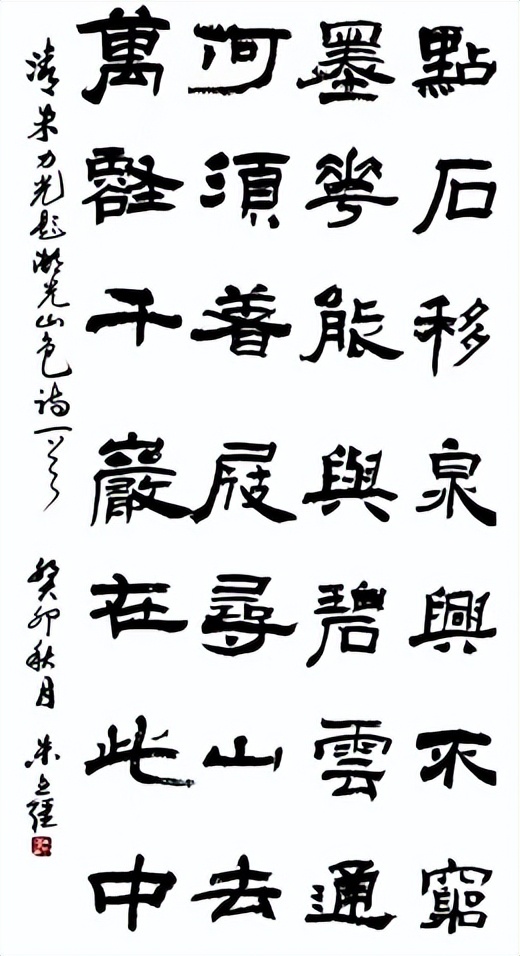 點石移泉興不窮
墨華能與碧雲通
何須着屐尋山去
萬壑千巖在此中
清朱力光题湖光山色诗一首
癸卯秋月 朱